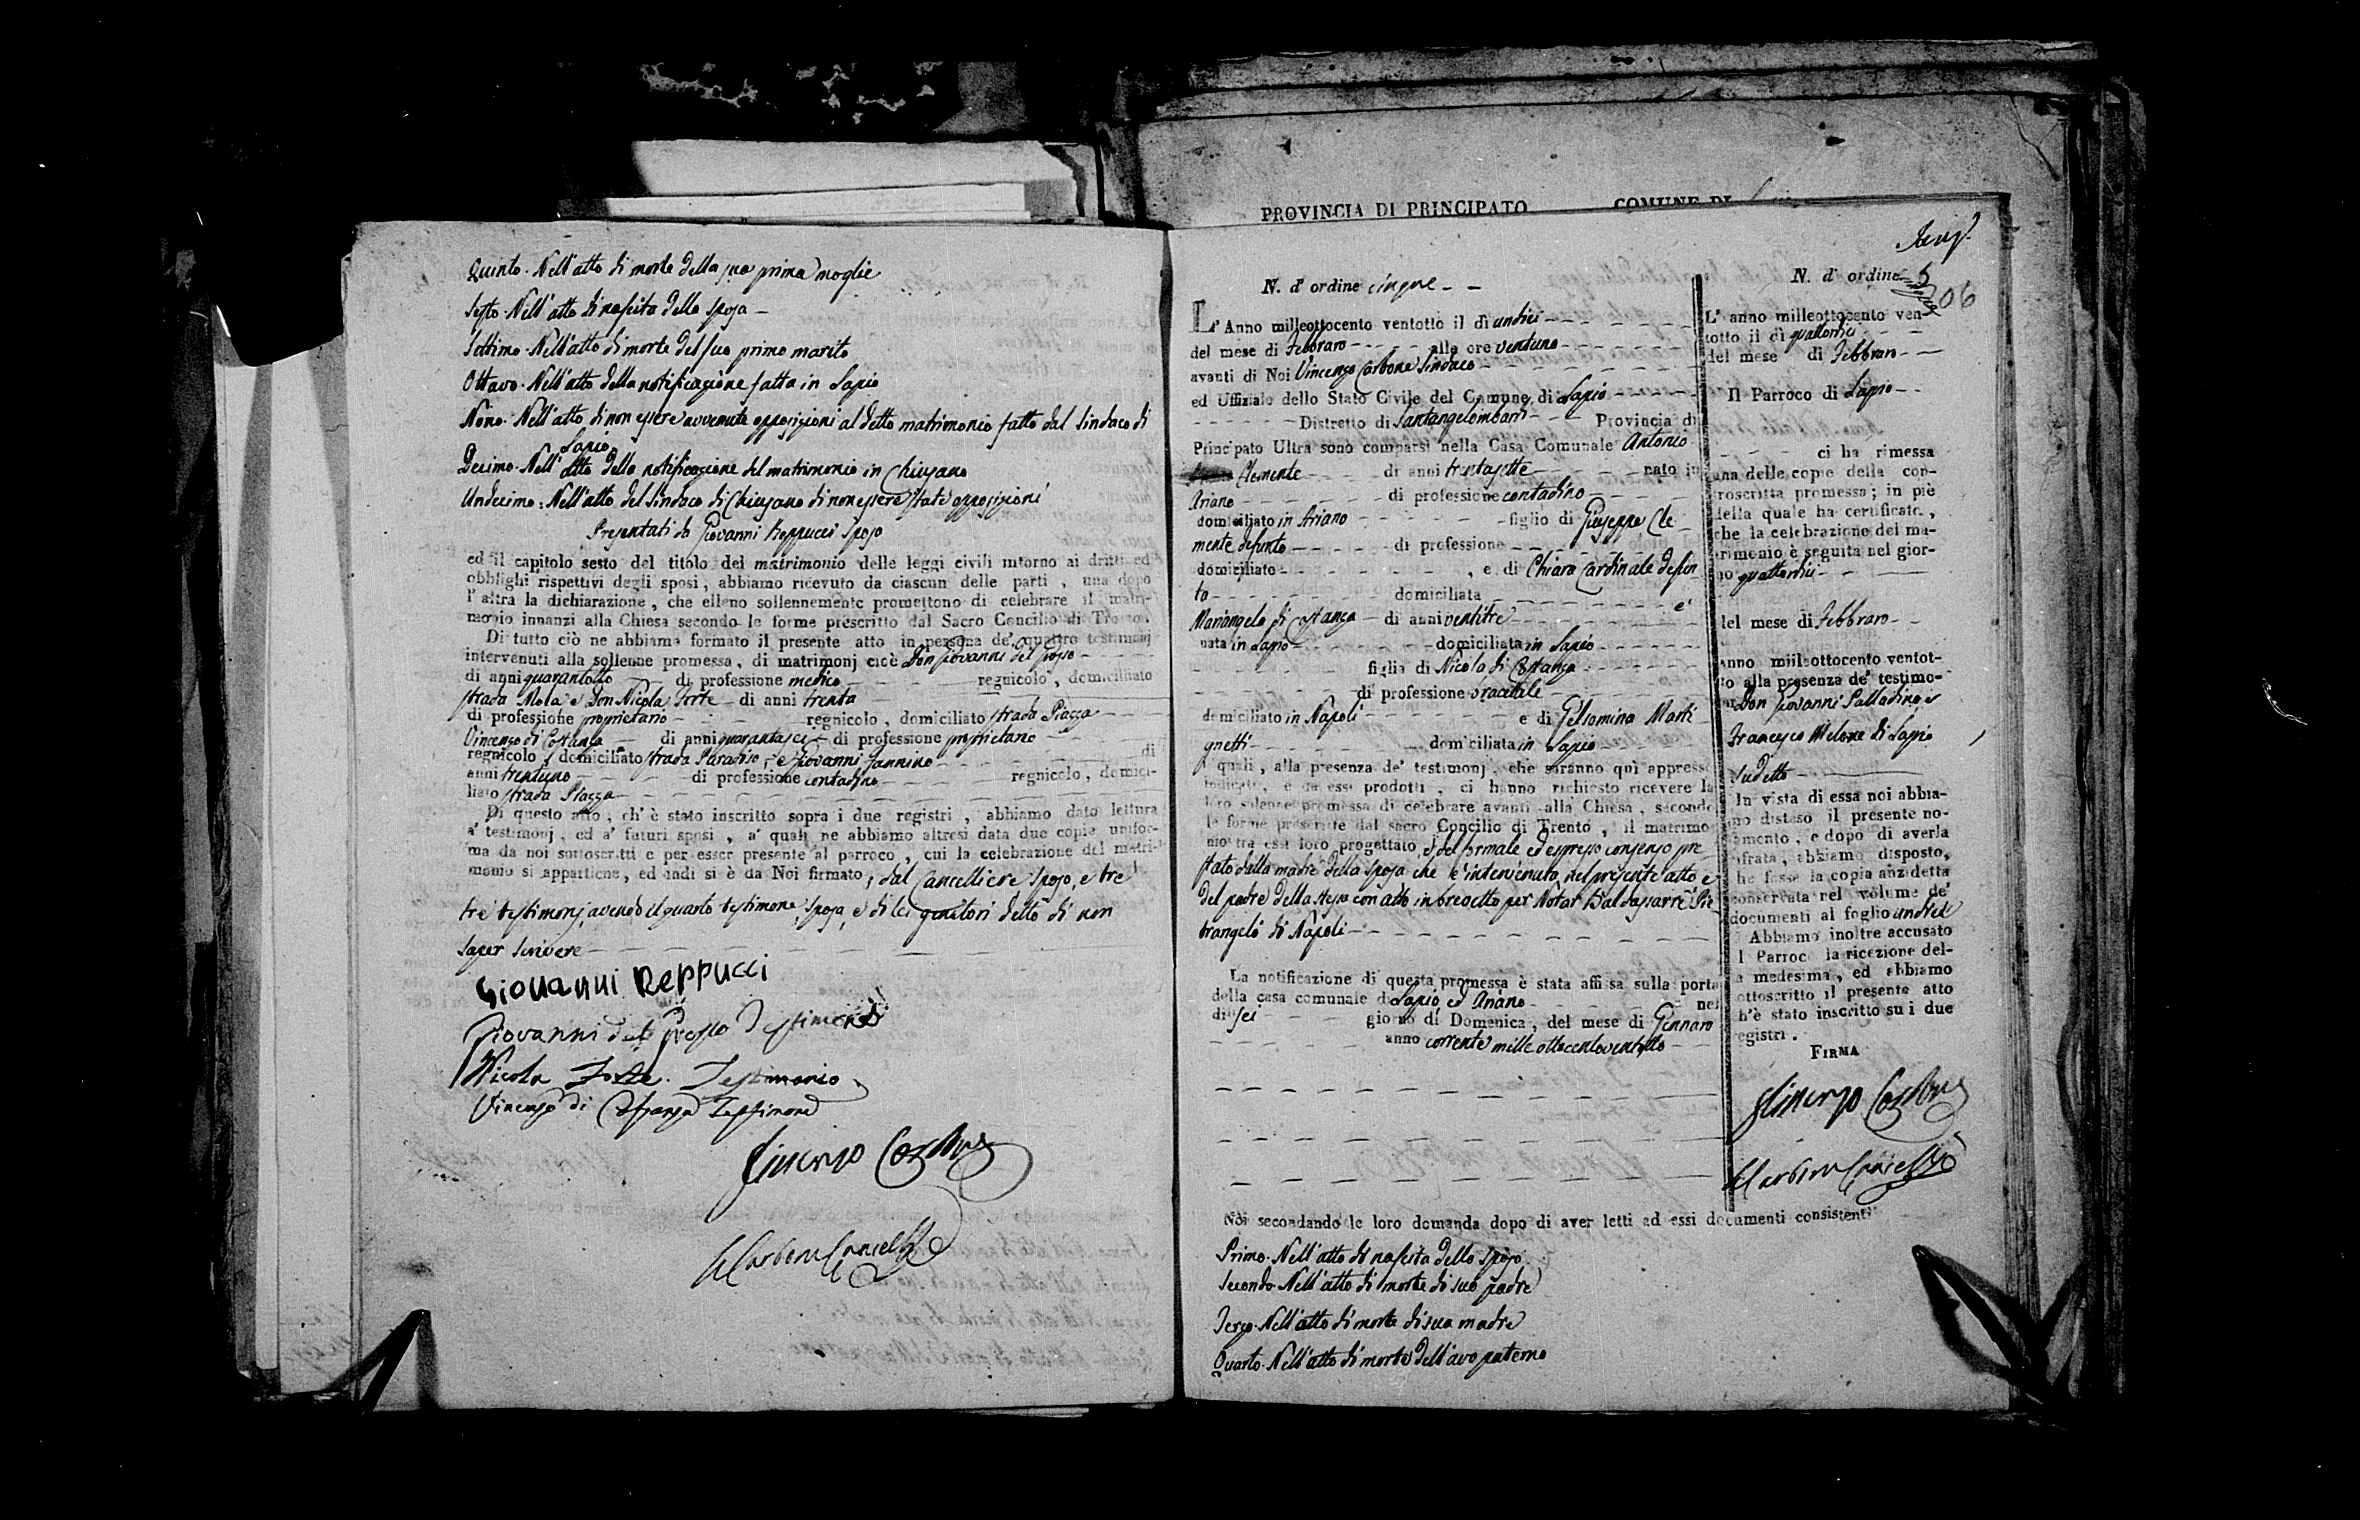 Quinto. Nell'atto di morte della sua prima moglie
Sesto. Nell'atto di nascita della sposa
Settimo. Nell'atto di morte del suo primo marito
Ottavo. Nell'atto della notificazione fatta in Lapio
Nono. Nell'atto di non essere avvenute opposizioni al detto matrimonio fatto dal Sindaco di
Lapio
Decimo. Nell'atto della notificazione del matrimonio in Chiusano
Undecimo. Nell'atto del Sindaco di Chiusano di non essere state opposizioni
Presentati da Giovanni Reppucci sposo
ed il capitolo sesto del titolo del matrimonio delle leggi civili intorno ai dritti ed
obblighi rispettivi degli sposi, abbiamo ricevuto da ciascun delle parti, una dopo
l'altra la dichiarazione, che elleno sollennemente promettono di celebrare il matri-
monio innanzi alla Chiesa secondo le forme prescritto dal Sacro Concilio di Trento.
Di tutto ciò ne abbiamo formato il presente atto in persona de' quattro testimonj
intervenuti alla sollenne promessa, di matrimonj cioè Don Giovanni del Grosso
di anni quarantotto di professione medico regnicolo, domiciliato
strada Mola e Don Nicola Forte di anni trenta
di professione proprietario regnicolo, domiciliato strada Piazza
Vincenzo di Costanza di anni quarantasei di professione proprietario
regnicolo, domiciliato strada Paradiso, e Giovanni Iannino di
anni trentuno di professione contadino regnicolo, domici-
liato strada Piazza
Di questo atto, ch'è stato inscritto sopra i due registri, abbiamo dato lettura
a' testimonj, ed a' futuri sposi, a' quali ne abbiamo altresì data due copie unifor-
ma da noi sottoscritti e per esser presente al parroco, cui la celebrazione del matri-
monio si appartiene, ed indi si è da Noi firmato, dal Cancelliere, sposo, e tre
tre testimonj, avendo il quarto testimone, sposa, e di lei genitori detto di non
saper scrivere
Giovanni Reppucci
Giovanni del Grosso Testimone
Nicola Forte Testimonio
Vincenzo di Costanza Testimone
Vincenzo Carbone
Carbone Cancell.
PROVINCIA DI PRINCIPATO COMUNE DI
N. d'ordine cinque
L'Anno milleottocento ventotto il dì undici
del mese di Febbraro alle ore ventuno
avanti di Noi Vincenzo Carbone Sindaco
ed Uffiziale dello Stato Civile del Comune di Lapio
Distretto di Santangelombardi Provincia di
Principato Ultra sono comparsi nella Casa Comunale Antonio
Clemente di anni trentasette nato in
Ariano di professione contadino
domiciliato in Ariano figlio di Giuseppe Cle-
mente defunto di professione
domiciliato , e di Chiara Cardinale defun
ta domiciliata e
Mariangela di Costanza di anni ventitre
nata in Lapio domiciliata in Lapio
figlia di Nicola di Costanza
di professione
domiciliato in Napoli e di Gelsomina Marti
gnetti domiciliata in Lapio
I quali, alla presenza de' testimonj, che saranno quì appresso
indicati, e da essi prodotti, ci hanno richiesto ricevere la
loro solenne promessa di celebrare avanti alla Chiesa, secondo
le forme prescritte dal sacro Concilio di Trento, il matrimo
nio tra essi loro progettato, e del formale ed espresso consenso pre-
stato dalla madre della sposa che è intervenuta nel presente atto e
del padre della stessa con atto in brevetto per Notar Baldassarre Pie
trangelo di Napoli
La notificazione di questa promessa è stata affissa sulla porta
della casa comunale di Lapio ed Ariano nel
dì sei giorno di Domenica, del mese di Gennaro
anno corrente mille ottocentoventotto
Nòi secondando le loro domanda dopo di aver letti ad essi documenti consistenti
Primo. Nell'atto di nascita dello sposo
Secondo. Nell'atto di morte di suo padre
Terzo. Nell'atto di morte di sua madre
Quarto. Nell'atto di morte dell'avo paterno
N. d'ordine 5
206
L'anno milleottocento ven-
totto il dì quattordici
del mese di Febbraro
Il Parroco di Lapio
ci ha rimessa
una delle copie della con-
troscritta promessa; in piè
della quale ha certificato,
che la celebrazione del ma-
trimonio è seguita nel gior-
no quattordici
del mese di Febbraro
anno millottocento ventot-
to alla presenza de' testimo-
nj Don Giovanni Palladino e
Francesco Melone di Lapio
sudetto
In vista di essa noi abbia-
mo disteso il presente no-
tamento, e dopo di averla
cifrata, abbiamo disposto,
che fosse la copia anzidetta
conservata nel volume de'
documenti al foglio undici
Abbiamo inoltre accusato
al Parroco la ricezione del-
la medesima, ed abbiamo
sottoscritto il presente atto
ch'è stato inscritto su i due
registri.
FIRMA
Vincenzo Carbone
Carbone Cancell.